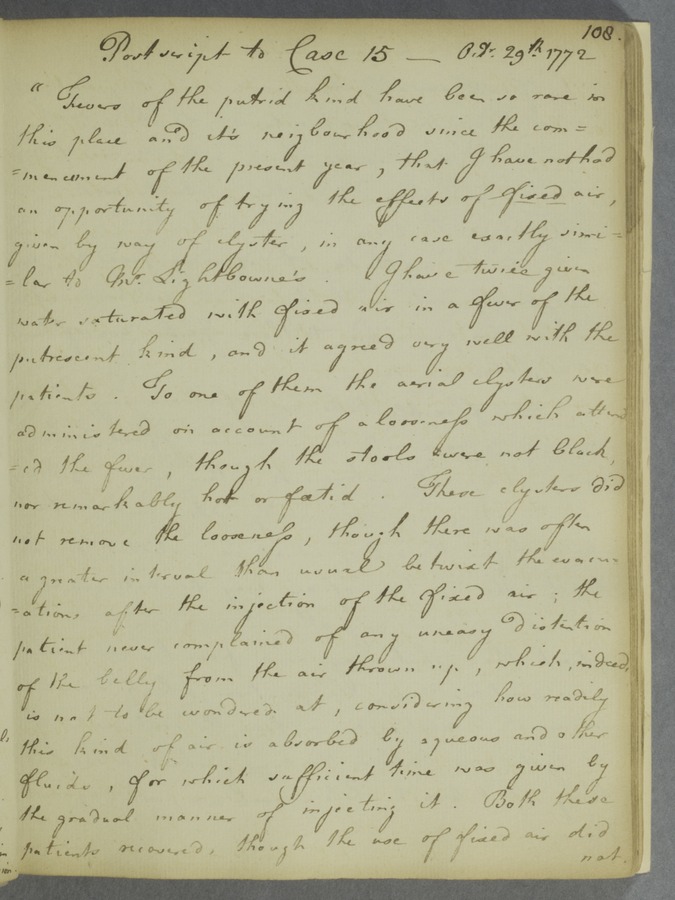 108.
Postscript to Case 15 — Oct. 29th. 1772
" Fevers of the putrid kind have been so rare in
this place and it's neigbourhood since the com=
=mencement of the present year, that I have not had
an opportunity of trying the effects of fixed air,
given by way of clyster, in any case exactly simi=
=lar to Mr. Lightbowne's. I have twice given
water saturated with fixed air in a fever of the
putrescent kind, and it agreed very well with the
patients. To one of them the aerial clysters were
administered on account of a looseness which attend
=ed the fever, though the stools were not black,
nor remarkably hot or fœtid. These clysters did
not remove the looseness, though there was often
a greater interval than usual betwixt the evacu=
=ations after the injection of the fixed air; the
patient never complained of any uneasy distention
of the belly from the air thrown up, which, indeed,
is not to be wondered at, considering how readily
this kind of air is absorbed by aqueous and other
fluids, for which sufficient time was given by
the gradual manner of injecting it. Both these
patients recovered, though the use of fixed air did
not.